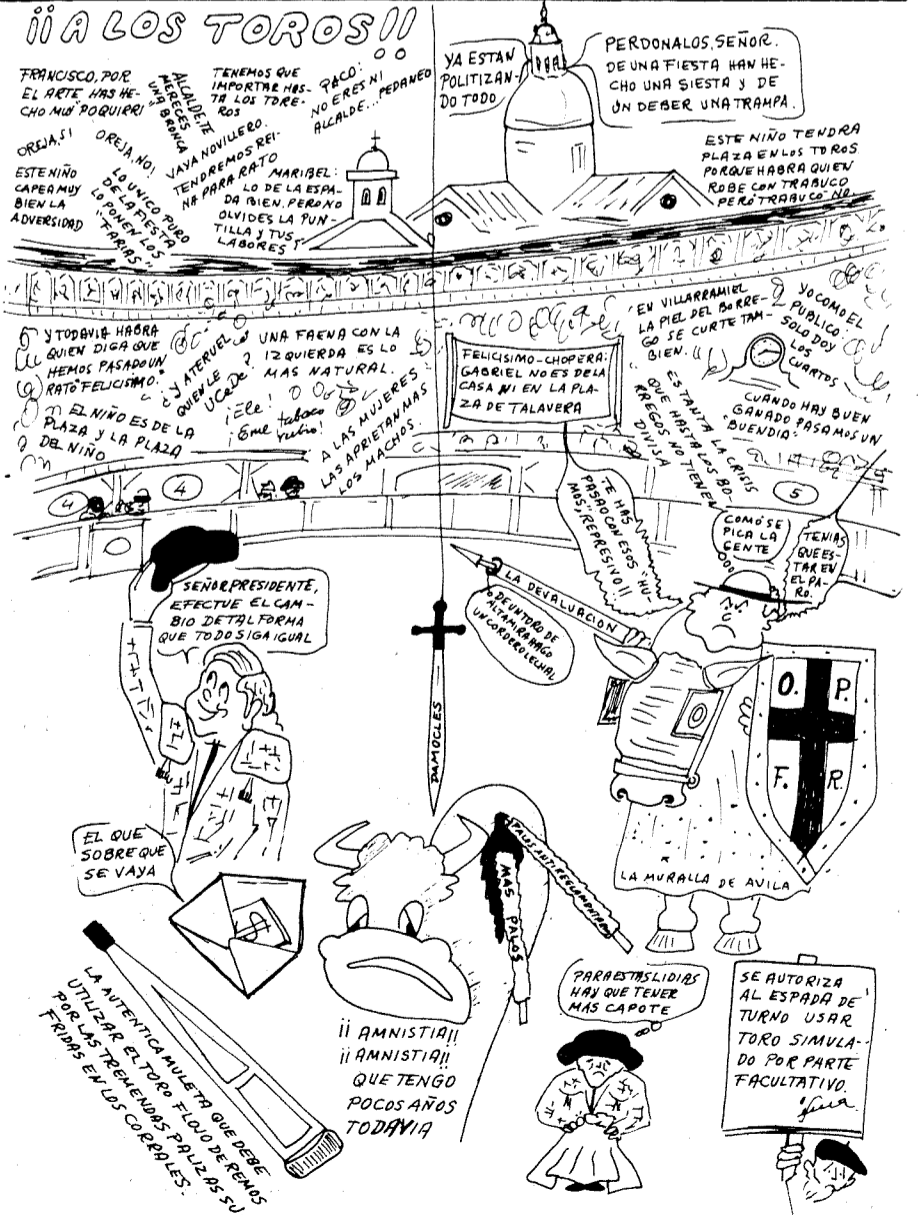 ¡¡A LOS TOROS!!
FRANCISCO, POR
EL ARTE HAS HE-
CHO MUY POQUIRRI
ALCALDE, TE
MERECES
UNA BRONCA
TENEMOS QUE
IMPORTAR HAS-
TA LOS TORE-
ROS
PACO:
NO ERES NI
ALCALDE... PEDANEO
YA ESTAN
POLITIZAN-
DO TODO
PERDONALOS, SEÑOR.
DE UNA FIESTA HAN HE-
CHO UNA SIESTA Y DE
UN DEBER UNA TRAMPA.
OREJA, SI
OREJA, NO!
VAYA NOVILLERO.
TENDREMOS REI-
NA PARA RATO
ESTE NIÑO
CAPEA MUY
BIEN LA
ADVERSIDAD
LO UNICO PURO
DE LA FIESTA
LO PONEN LOS
"FARIAS"
MARIBEL:
LO DE LA ESPA-
DA BIEN, PERO NO
OLVIDES LA PUN-
TILLA Y TUS
LABORES
ESTE NIÑO TENDRA
PLAZA EN LOS TOROS
PORQUE HABRA QUIEN
ROBE CON TRABUCO
PERO TRABUCO NO.
Y TODAVIA HABRA
QUIEN DIGA QUE
HEMOS PASADO UN
RATO "FELICISIMO."
¿Y A TERUEL
QUIEN LE
UCeDe?
UNA FAENA CON LA
IZQUIERDA ES LO
MAS NATURAL.
EL NIÑO ES DE LA
PLAZA Y LA PLAZA
DEL NIÑO
¡Ele!
¡Eme tabaco
rubio!
A LAS MUJERES
LAS APRIETAN MAS
LOS MACHOS.
FELICISIMO-CHOPERA:
GABRIEL NO ES DE LA
CASA NI EN LA PLA-
ZA DE TALAVERA
EN VILLARRAMIEL
LA PIEL DEL BORRE-
GO SE CURTE TAM-
BIEN.
YO COMO EL
PUBLICO
SOLO DOY
LOS
CUARTOS
CUANDO HAY BUEN
GANADO PASAMOS UN
"BUENDIA"
ES TANTA LA CRISIS
QUE HASTA LOS BO-
RREGOS NO TIENEN
DIVISA
4
4
5
TE HAS
PASAO CON ESOS "HU-
MOS," REPRESIVO!!
COMO SE
PICA LA
GENTE
TENIAS
QUE ES-
TAR EN
EL PA-
RO.
SEÑOR PRESIDENTE,
EFECTUE EL CAM-
BIO DE TAL FORMA
QUE TODO SIGA IGUAL
LA DEVALUACION
O DE UN TORO DE
ALTAMIRA HAGO
UN CORDERO LECHAL
DAMOCLES
O. P.
F. R.
EL QUE
SOBRE QUE
SE VAYA
PALOS ANTIREGLAMENTARIOS
MAS PALOS
LA MURALLA DE AVILA
LA AUTENTICA MULETA QUE DEBE
UTILIZAR EL TORO FLOJO DE REMOS
POR LAS TREMENDAS PALIZAS SU
FRIDAS EN LOS CORRALES.
¡¡AMNISTIA!!
¡¡AMNISTIA!!
QUE TENGO
POCOS AÑOS
TODAVIA
PARA ESTAS LIDIAS
HAY QUE TENER
MAS CAPOTE
SE AUTORIZA
AL ESPADA DE
TURNO USAR
TORO SIMULA-
DO POR PARTE
FACULTATIVO.